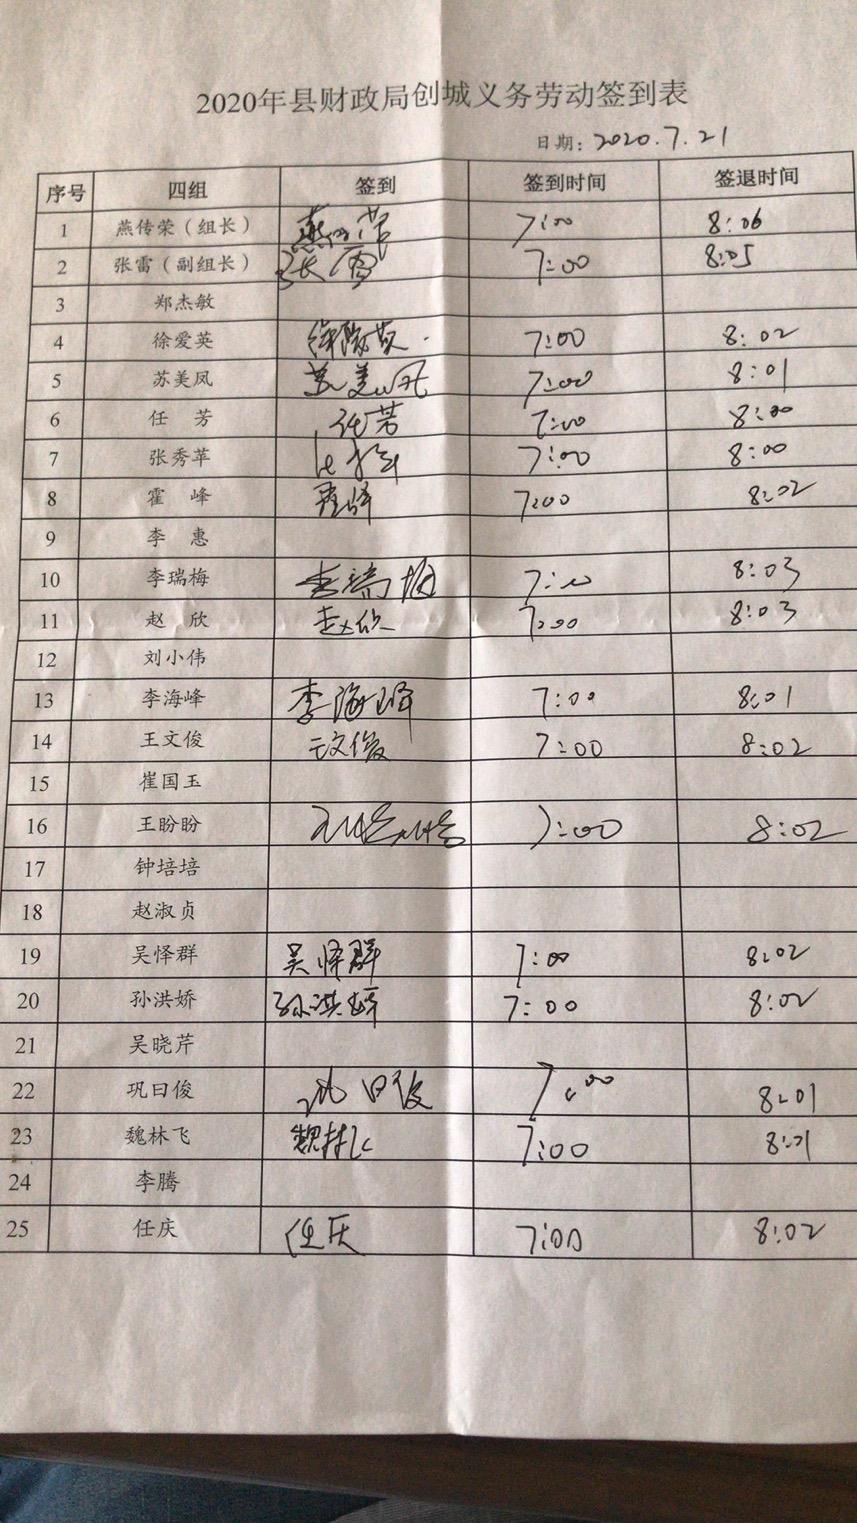 2020年县财政局创城义务劳动签到表
日期：2020.7.21
序号 四组 签到 签到时间 签退时间
1 燕传荣（组长） 燕传荣 7:00 8:06
2 张雷（副组长） 张雷 7:00 8:05
3 郑杰敏
4 徐爱英 徐爱英 7:00 8:02
5 苏美凤 苏美凤 7:00 8:01
6 任 芳 任芳 7:00 8:00
7 张秀苹 7:00 8:00
8 霍 峰 霍峰 7:00 8:02
9 李 惠
10 李瑞梅 李瑞梅 7:00 8:03
11 赵 欣 赵欣 7:00 8:03
12 刘小伟
13 李海峰 李海峰 7:00 8:01
14 王文俊 王文俊 7:00 8:02
15 崔国玉
16 王盼盼 王盼盼 7:00 8:02
17 钟培培
18 赵淑贞
19 吴怿群 吴怿群 7:00 8:02
20 孙洪娇 孙洪娇 7:00 8:02
21 吴晓芹
22 巩曰俊 巩曰俊 7:00 8:01
23 魏林飞 魏林飞 7:00 8:01
24 李腾
25 任庆 任庆 7:00 8:02